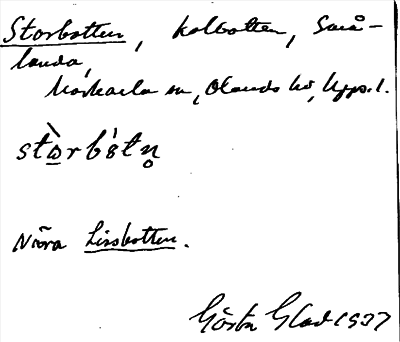 Storbotten, kolbotten, Små-
landa,
Morkarla sn, Olands hd, Uppl.
stòrbòtn̥
Nära Lissbotten.
Gösta Glad 1937